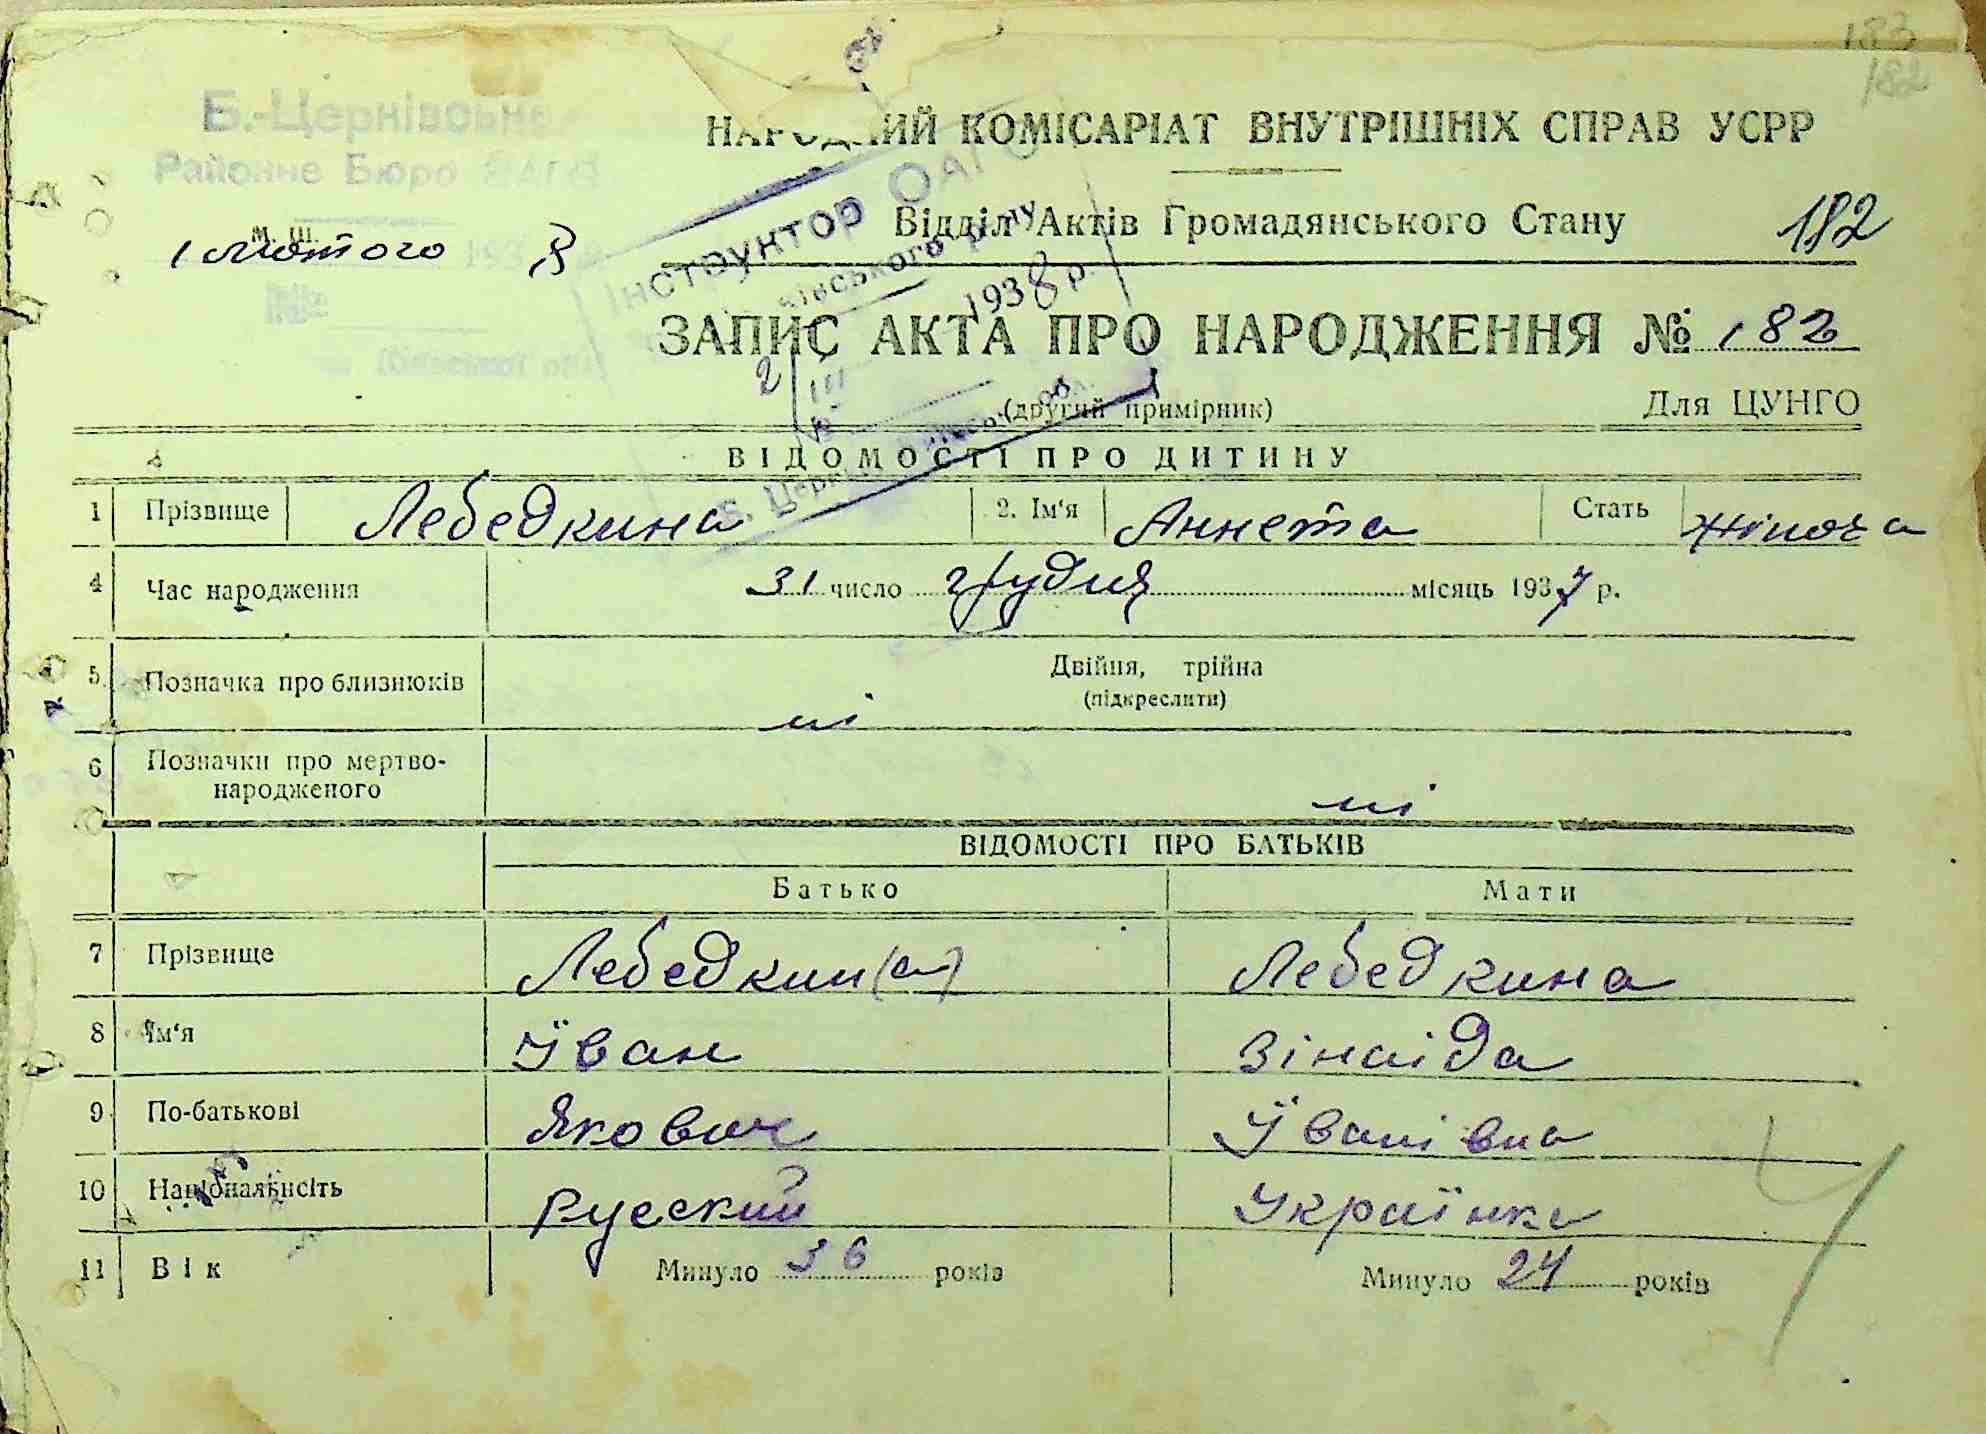 183
182
Б.-Церківське
Районне Бюро ЗАГС
НАРОДНИЙ КОМІСАРІАТ ВНУТРІШНІХ СПРАВ УСРР
Відділ Актів Громадянського Стану
182
1 лютого 193 8
Інструктор ОАГС
1938 р.
ЗАПИС АКТА ПРО НАРОДЖЕННЯ № 182
(другий примірник)
Для ЦУНГО
ВІДОМОСТІ ПРО ДИТИНУ
1 Прізвище Лебедкина 2. Ім‘я Аннета Стать жіноча
4 Час народження 31 число грудня місяць 1937 р.
5 Позначка про близнюків Двійня, трійна
(підкреслити)
ні
6 Позначки про мертво-
народженого ні
ВІДОМОСТІ ПРО БАТЬКІВ
Батько Мати
7 Прізвище Лебедкин(а) Лебедкина
8 Ім‘я Їван Зінаіда
9 По-батькові Якович Їванівна
10 Національність Русский Українка
11 Вік Минуло 36 років Минуло 24 років